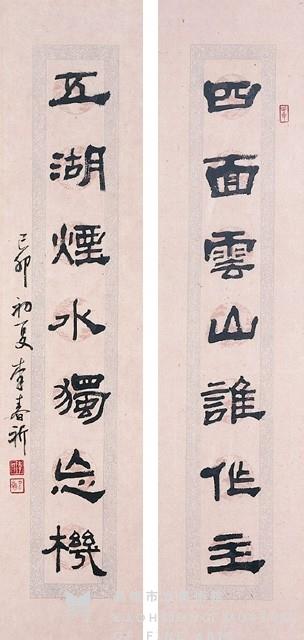 四面雲山誰作主
五湖煙水獨忘機
己卯初夏李春祈